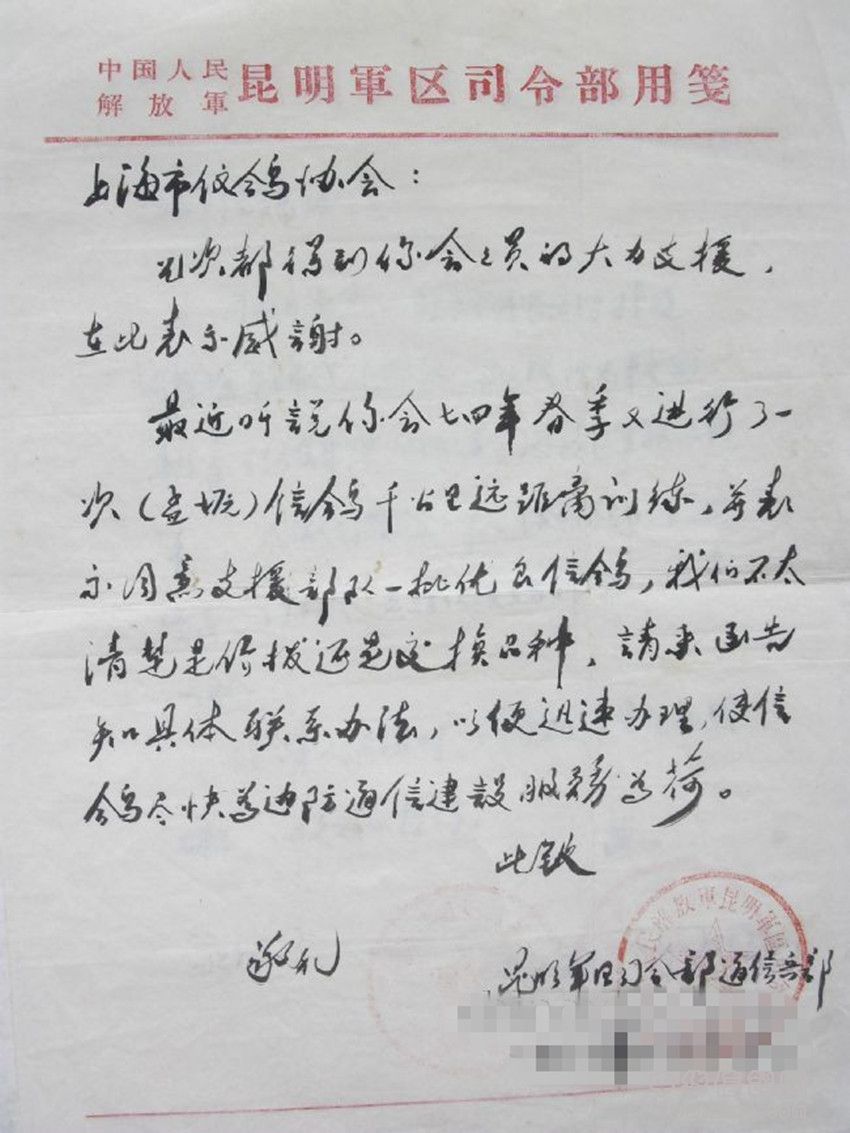 中国人民
解放軍
昆明軍区司令部用箋
上海市信鸽协会：
几次都得到你会会员的大力支援，
在此表示感謝。
最近听説你会七四年春季又进行了一
次（孟塬）信鸽千公里远距离训练，并表
示同意支援部队一批优良信鸽，我们不太
清楚是价拨还是交换品种，請来函告
知具体联系办法，以便迅速办理，使信
鸽尽快为边防通信建設服务为荷。
此致
敬礼
昆明军区司令部通信兵部
民解放軍昆明軍區